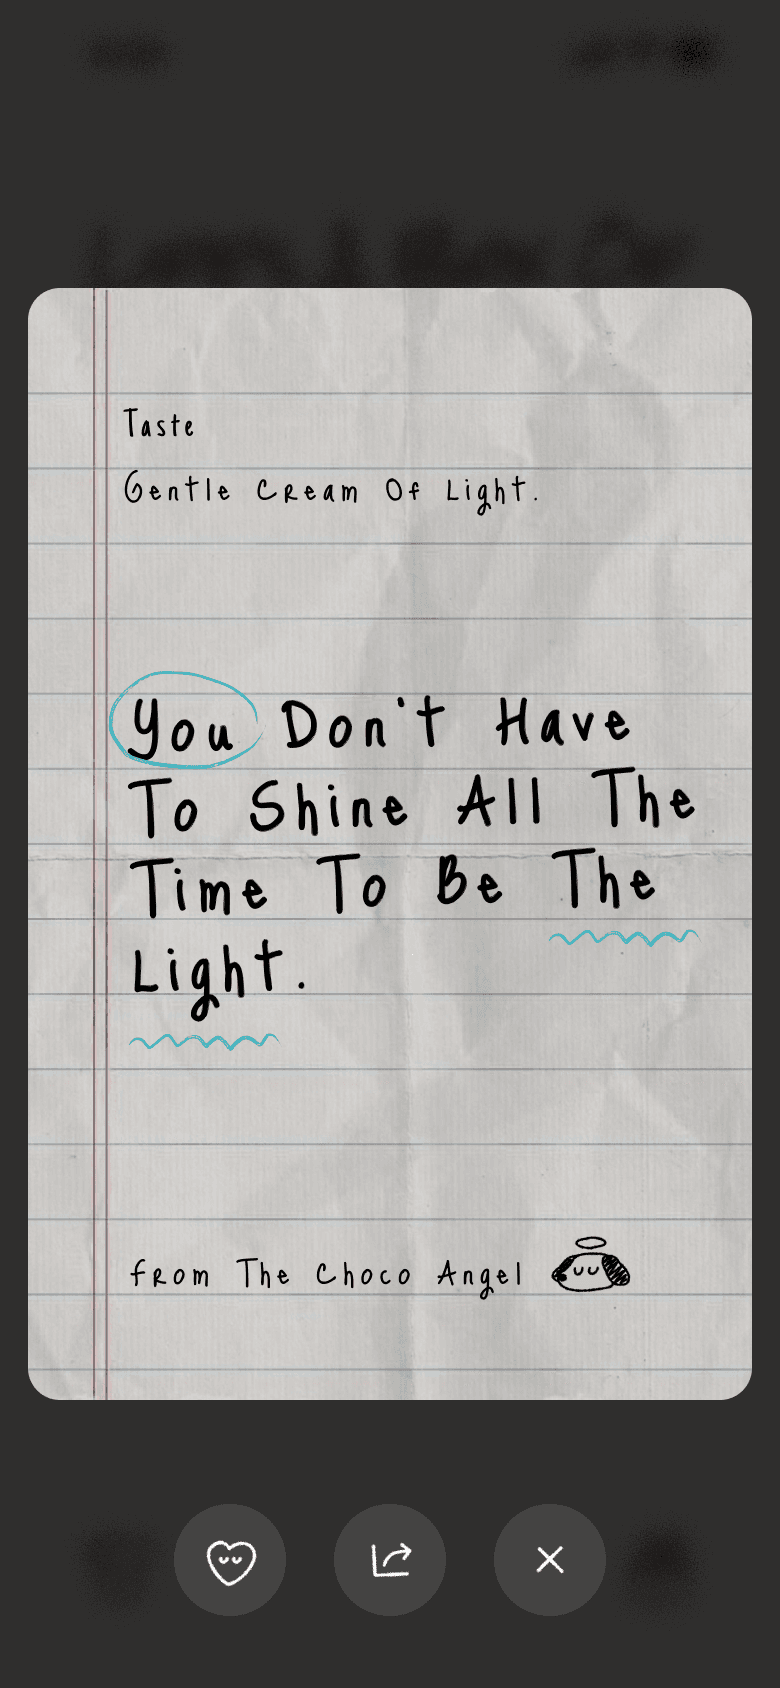 Taste
Gentle Cream Of Light.
You Don't Have
To Shine All The
Time To Be The
Light.
from The Choco Angel